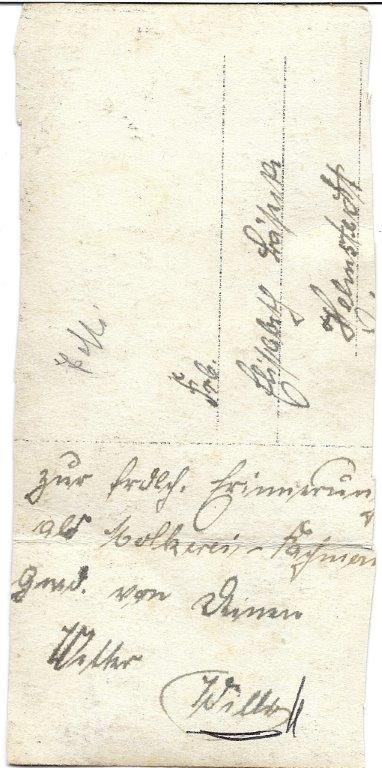 Frl.
Elisabeth
Helmstedt
zur frdlch. Erinnerun
als Molkerei-Fachman
von Deinen
Vetter
Willy